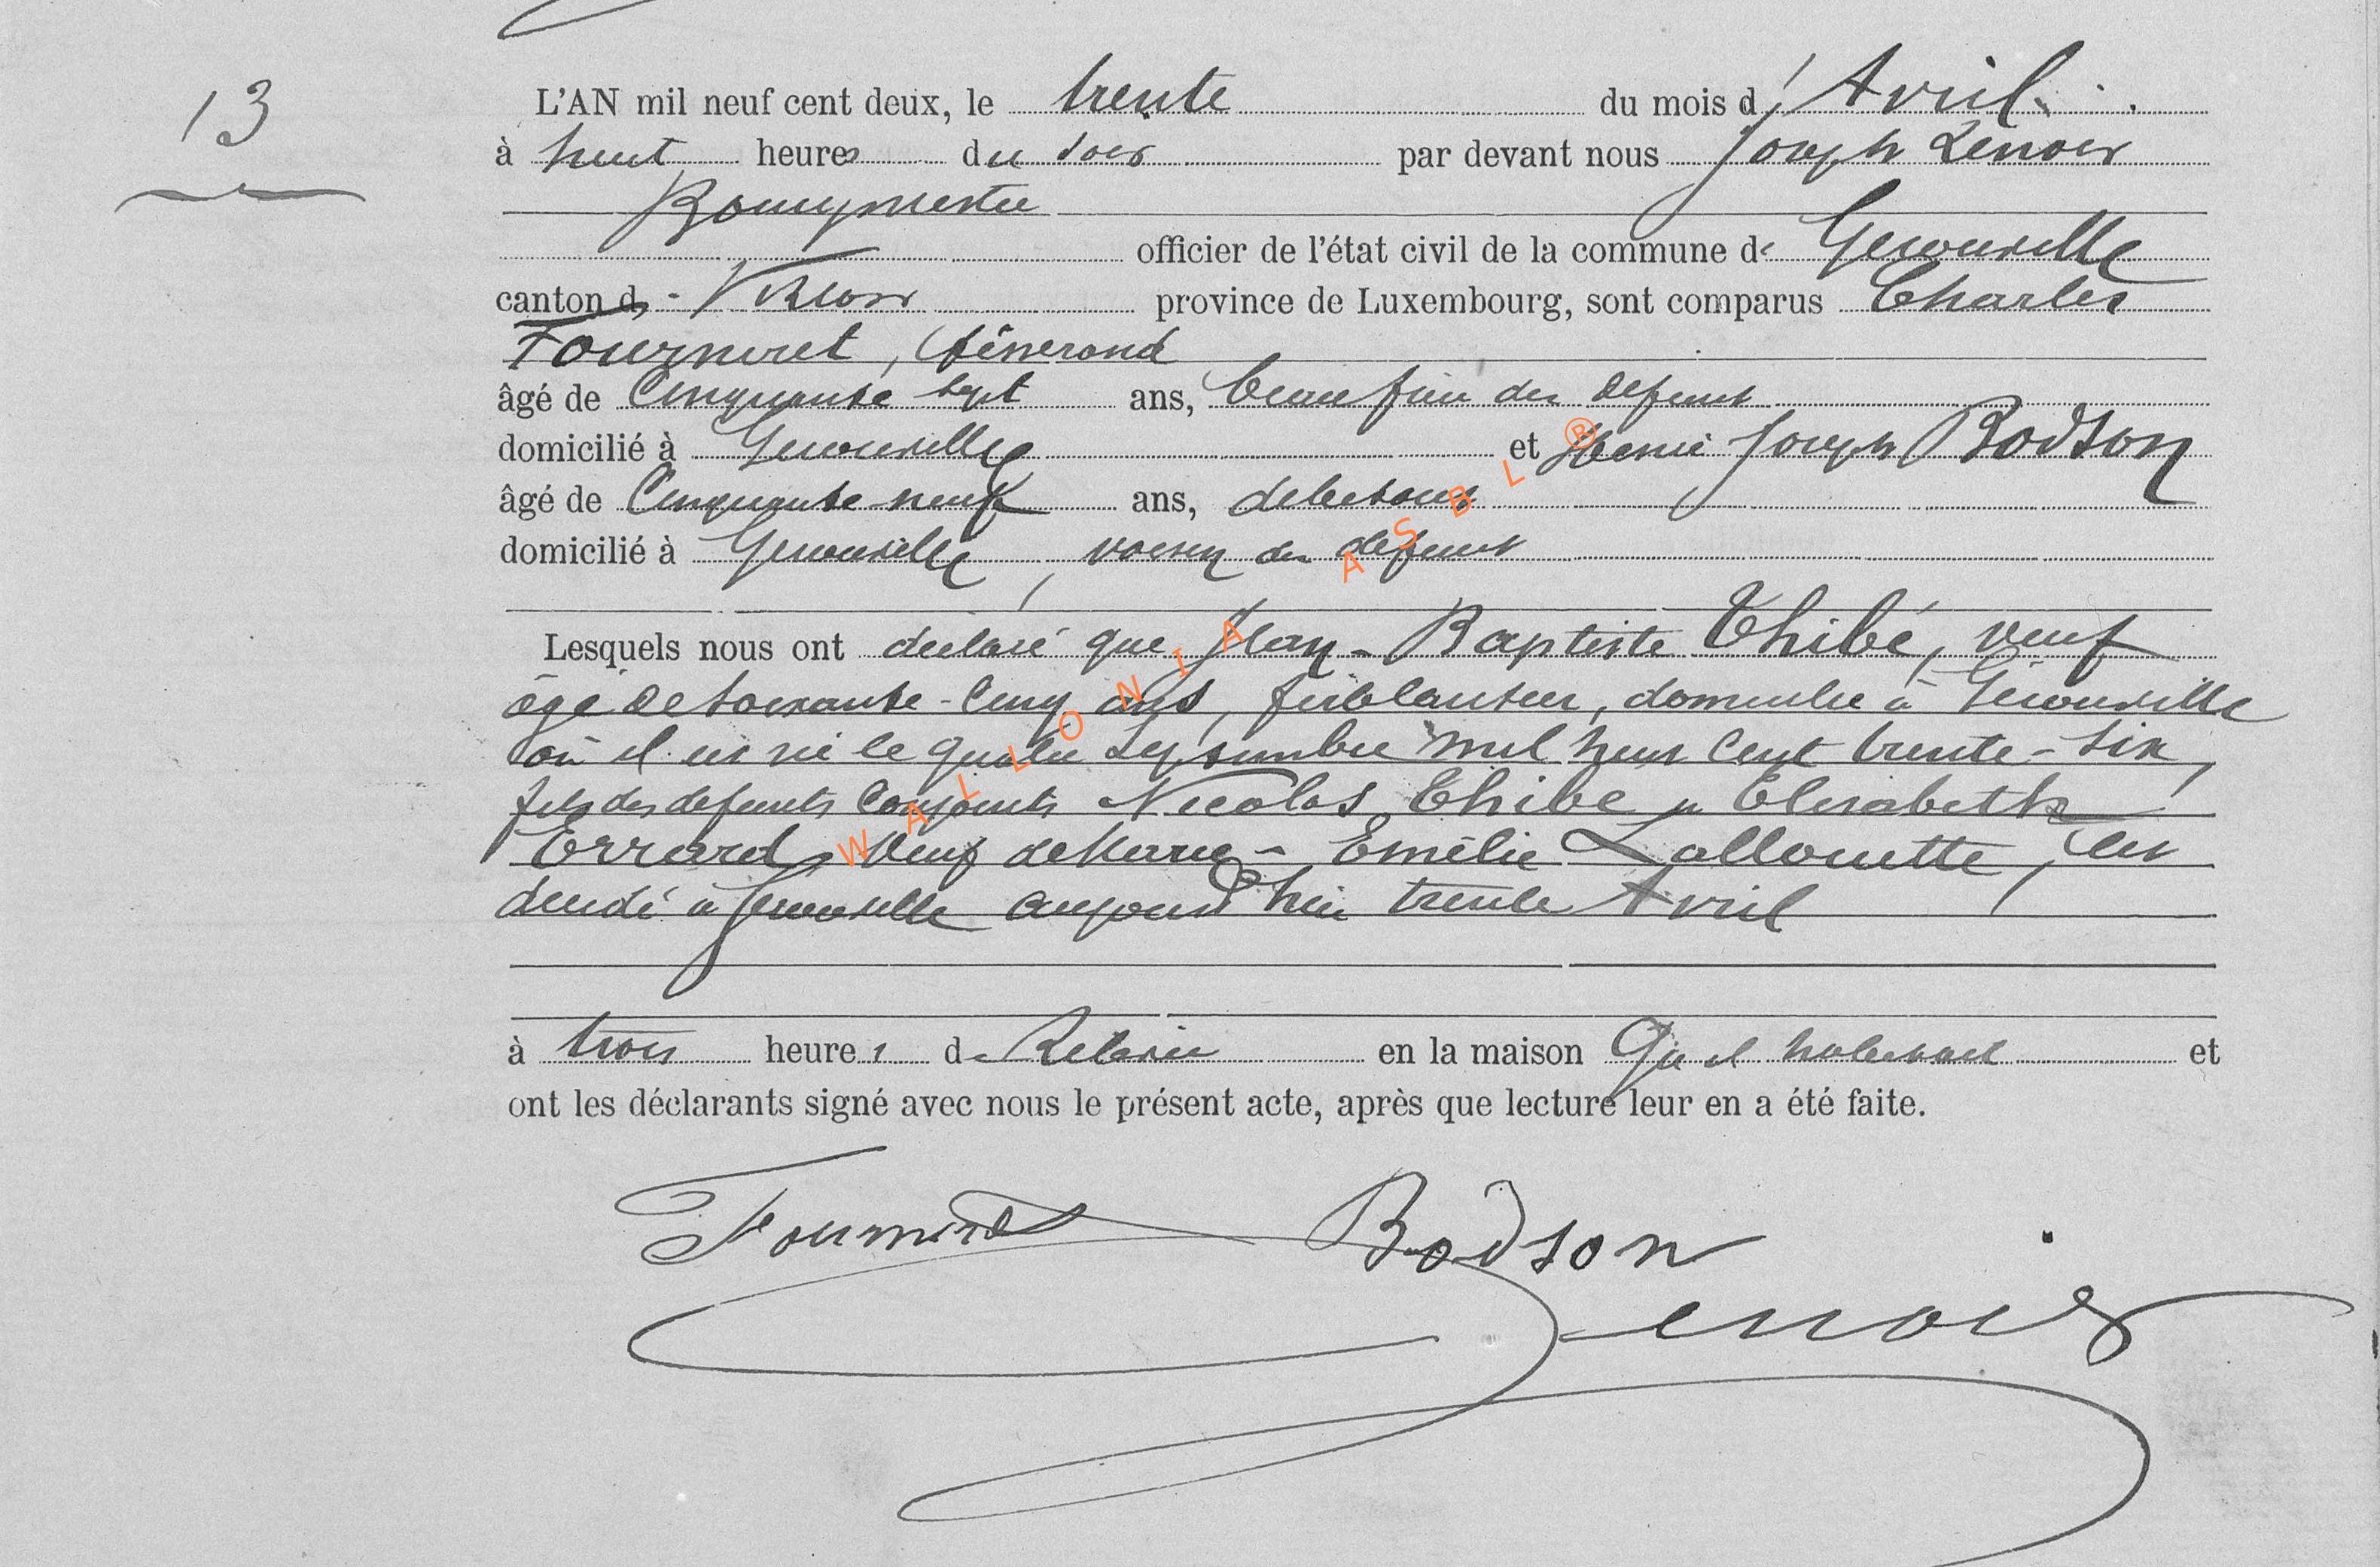 13
L'AN mil neuf cent deux, le trente du mois d'Avril
à huit heures du soir par devant nous Joseph Lenoir
Bourgmestre
officier de l'état civil de la commune de Gerouville
canton de Virton province de Luxembourg, sont comparus Charles
Fourniret, tisserand
âgé de Cinquante sept ans, beau frère du défunt
domicilié à Gerouville et Henri Joseph Bodson
âgé de Cinquante-neuf ans, debitant
domicilié à Gerouville, voisin du défunt
Lesquels nous ont déclaré que Jean-Baptiste Thibé, veuf
âgé de soixante-cinq ans, ferblantier, domicilié à Gérouville
où il est né le quatre Septembre mil huit cent trente-six,
fils des défunts conjoints Nicolas Thibé et Elisabeth
Errard, veuf de Marie-Emélie Lallouette, est
décédé à Gerouville aujourd'hui trente Avril
à trois heures de Relevée en la maison Qu'il habitait et
ont les déclarants signé avec nous le présent acte, après que lecture leur en a été faite.
Fourniret Bodson
Lenoir
WALLONIA ASBL ®